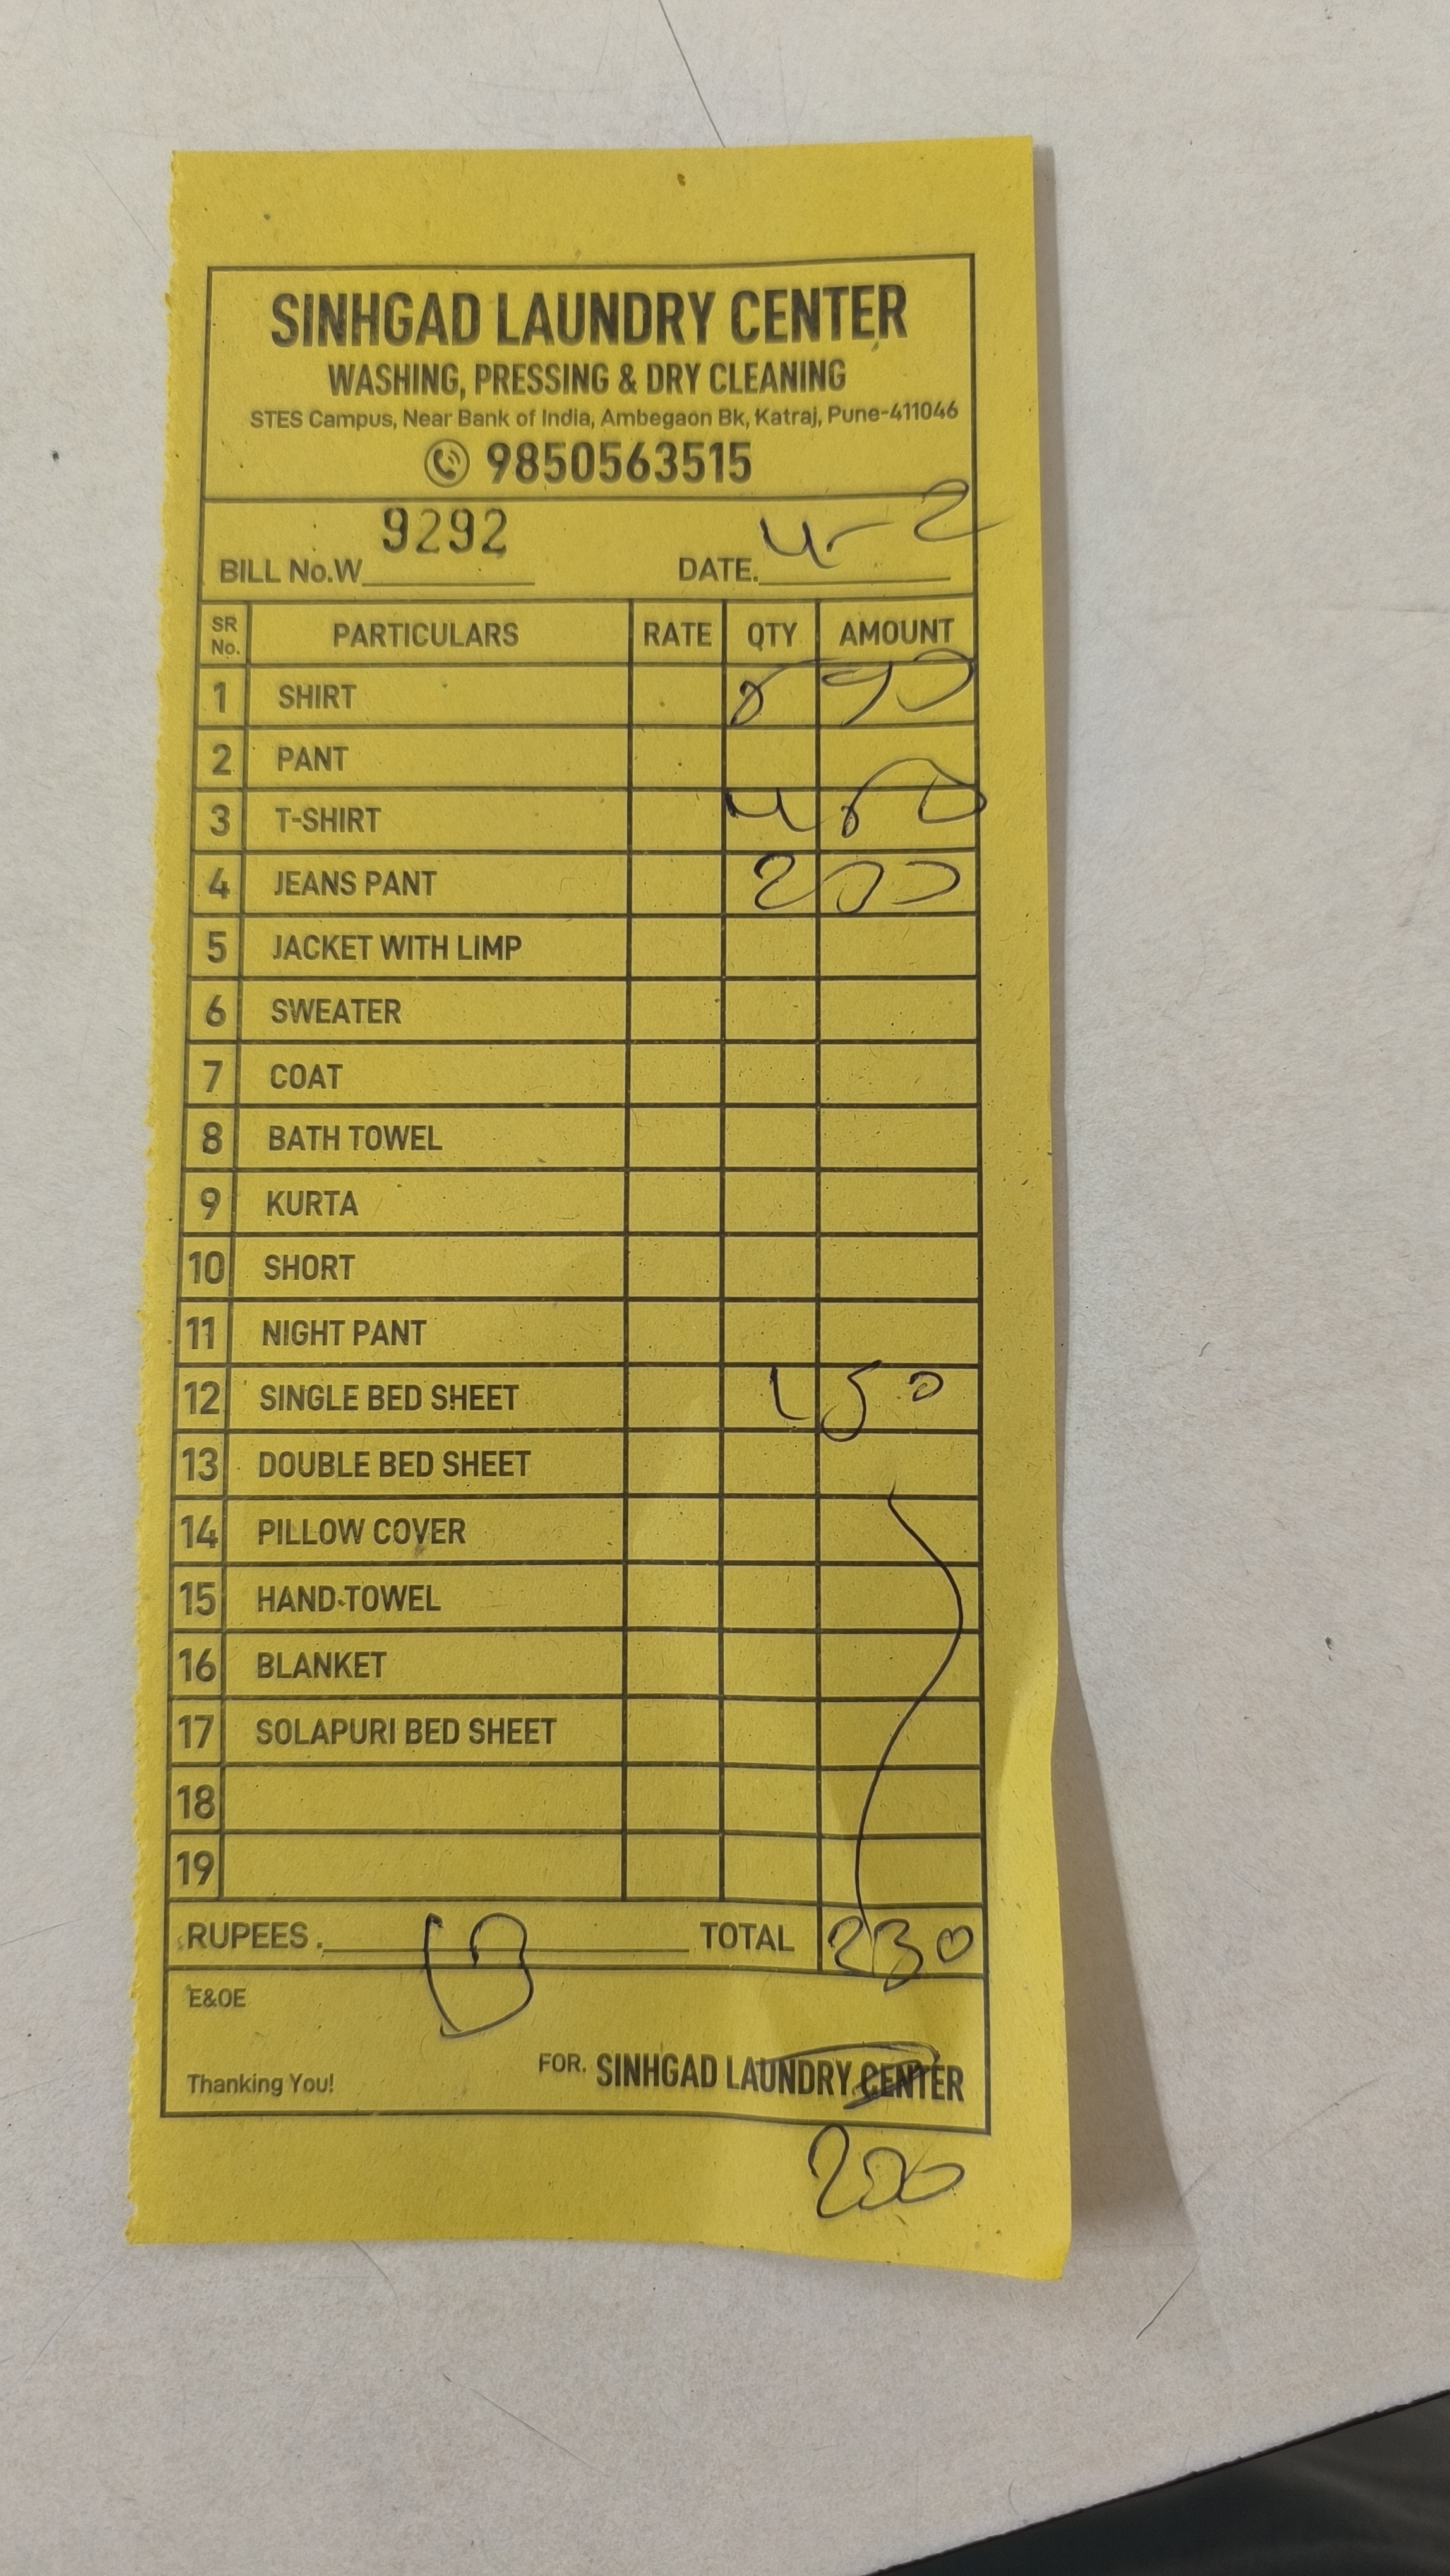 SINHGAD LAUNDRY CENTER
WASHING, PRESSING & DRY CLEANING
STES Campus, Near Bank of India, Ambegaon Bk, Katraj, Pune-411046
9850563515
BILL No.W 9292 DATE. 4-2
SR No. PARTICULARS RATE QTY AMOUNT
1 SHIRT
2 PANT
3 T-SHIRT 4
4 JEANS PANT 2
5 JACKET WITH LIMP
6 SWEATER
7 COAT
8 BATH TOWEL
9 KURTA
10 SHORT
11 NIGHT PANT
12 SINGLE BED SHEET 1 50
13 DOUBLE BED SHEET
14 PILLOW COVER
15 HAND-TOWEL
16 BLANKET
17 SOLAPURI BED SHEET
18
19
RUPEES. TOTAL 230
E&OE
FOR. SINHGAD LAUNDRY CENTER
Thanking You!
200